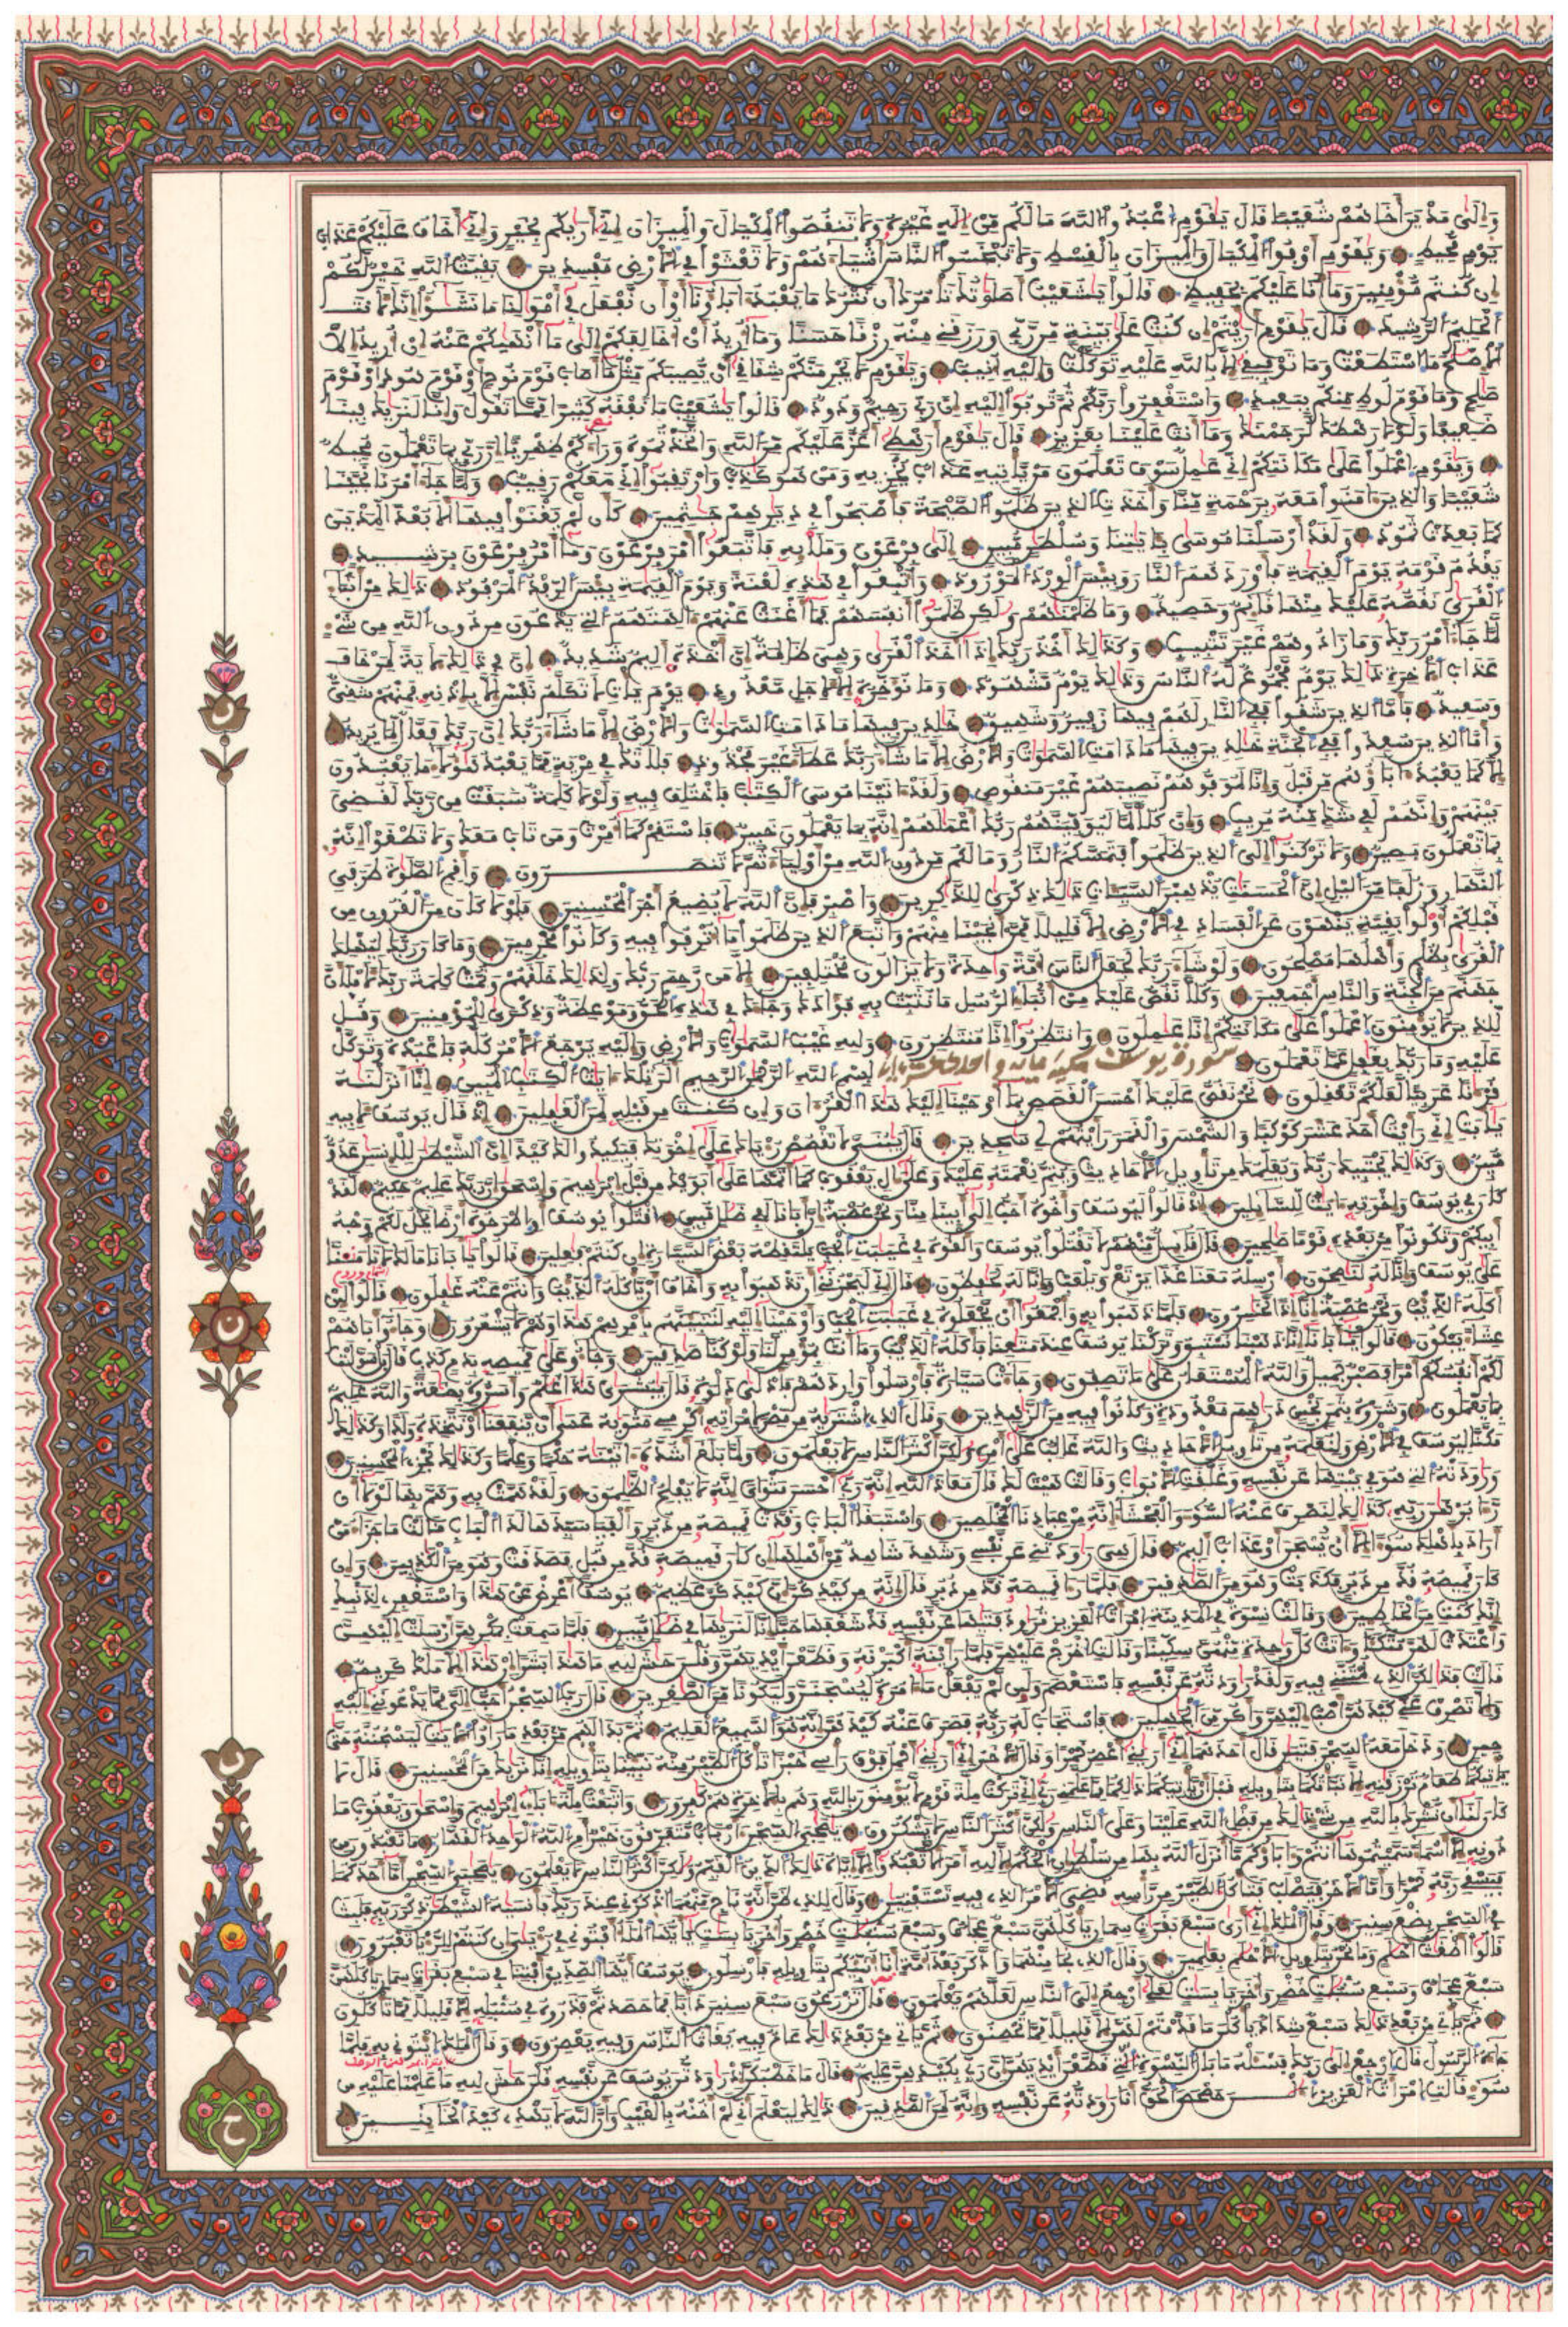 وإلى مدين أخاهم شعيبا قال يقوم اعبدوا الله ما لكم من إله غيره ولا تنقصوا المكيال والميزان إني أريكم بخير وإني أخاف عليكم عذاب
يوم محيط ويقوم أوفوا المكيال والميزان بالقسط ولا تبخسوا الناس أشياءهم ولا تعثوا في الأرض مفسدين بقيت الله خير لكم
إن كنتم مؤمنين وما أنا عليكم بحفيظ قالوا يشعيب أصلوتك تأمرك أن نترك ما يعبد آباؤنا أو أن نفعل في أموالنا ما نشؤا إنك لأنت
الحليم الرشيد قال يقوم أريتم إن كنت على بينة من ربي ورزقني منه رزقا حسنا وما أريد أن أخالفكم إلى ما أنهيكم عنه إن أريد إلا
الإصلح ما استطعت وما توفيقي إلا بالله عليه توكلت وإليه أنيب ويقوم لا يجرمنكم شقاقي أن يصيبكم مثل ما أصاب قوم نوح أو قوم هود أو قوم
صلح وما قوم لوط منكم ببعيد واستغفروا ربكم ثم توبوا إليه إن ربي رحيم ودود قالوا يشعيب ما نفقه كثيرا مما تقول وإنا لنريك فينا
ضعيفا ولولا رهطك لرجمنك وما أنت علينا بعزيز قال يقوم أرهطي أعز عليكم من الله واتخذتموه وراءكم ظهريا إن ربي بما تعملون محيط
ويقوم اعملوا على مكانتكم إني عمل سوف تعلمون من يأتيه عذاب يخزيه ومن هو كذب وارتقبوا إني معكم رقيب ولما جاء أمرنا نجينا
شعيبا والذين آمنوا معه برحمة منا وأخذت الذين ظلموا الصيحة فأصبحوا في ديرهم جثمين كأن لم يغنوا فيها ألا بعدا لمدين
كما بعدت ثمود ولقد أرسلنا موسى بآيتنا وسلطن مبين إلى فرعون وملإيه فاتبعوا أمر فرعون وما أمر فرعون برشيد
يقدم قومه يوم القيمة فأوردهم النار وبيس الورد المورود وأتبعوا في هذه لعنة ويوم القيمة بيس الرفد المرفود ذلك من أنباء
القرى نقصه عليك منها قائم وحصيد وما ظلمنهم ولكن ظلموا أنفسهم فما أغنت عنهم آلهتهم التي يدعون من دون الله من شيء
لما جاء أمر ربك وما زادوهم غير تتبيب وكذلك أخذ ربك إذا أخذ القرى وهي ظلمة إن أخذه أليم شديد إن في ذلك لآية لمن خاف
عذاب الآخرة ذلك يوم مجموع له الناس وذلك يوم مشهود وما نؤخره إلا لأجل معدود يوم يأت لا تكلم نفس إلا بإذنه فمنهم شقي
وسعيد فأما الذين شقوا ففي النار لهم فيها زفير وشهيق خلدين فيها ما دامت السموت والأرض إلا ما شاء ربك إن ربك فعال لما يريد
وأما الذين سعدوا ففي الجنة خلدين فيها ما دامت السموت والأرض إلا ما شاء ربك عطاء غير مجذوذ فلا تك في مرية مما يعبد هؤلاء ما يعبدون
إلا كما يعبد آباؤهم من قبل وإنا لموفوهم نصيبهم غير منقوص ولقد آتينا موسى الكتب فاختلف فيه ولولا كلمة سبقت من ربك لقضي
بينهم وإنهم لفي شك منه مريب وإن كلا لما ليوفينهم ربك أعملهم إنه بما يعملون خبير فاستقم كما أمرت ومن تاب معك ولا تطغوا إنه
بما تعملون بصير ولا تركنوا إلى الذين ظلموا فتمسكم النار وما لكم من دون الله من أولياء ثم لا تنصرون وأقم الصلوة طرفي
النهار وزلفا من اليل إن الحسنت يذهبن السيئات ذلك ذكرى للذكرين واصبر فإن الله لا يضيع أجر المحسنين فلولا كان من القرون من
قبلكم أولوا بقية ينهون عن الفساد في الأرض إلا قليلا ممن أنجينا منهم واتبع الذين ظلموا ما أترفوا فيه وكانوا مجرمين وما كان ربك ليهلك
القرى بظلم وأهلها مصلحون ولو شاء ربك لجعل الناس أمة وحدة ولا يزالون مختلفين إلا من رحم ربك ولذلك خلقهم وتمت كلمة ربك لأملأن
جهنم من الجنة والناس أجمعين وكلا نقص عليك من أنباء الرسل ما نثبت به فؤادك وجاءك في هذه الحق وموعظة وذكرى للمؤمنين وقل
للذين لا يؤمنون اعملوا على مكانتكم إنا عملون وانتظروا إنا منتظرون ولله غيب السموت والأرض وإليه يرجع الأمر كله فاعبده وتوكل
عليه وما ربك بغفل عما تعملون سورة يوسف مكية بسم الله الرحمن الرحيم الر تلك آيت الكتب المبين إنا أنزلنه
قرآنا عربيا لعلكم تعقلون نحن نقص عليك أحسن القصص بما أوحينا إليك هذا القرآن وإن كنت من قبله لمن الغفلين إذ قال يوسف لأبيه
يأبت إني رأيت أحد عشر كوكبا والشمس والقمر رأيتهم لي سجدين قال يبني لا تقصص رءياك على إخوتك فيكيدوا لك كيدا إن الشيطن للإنسن عدو
مبين وكذلك يجتبيك ربك ويعلمك من تأويل الأحاديث ويتم نعمته عليك وعلى آل يعقوب كما أتمها على أبويك من قبل إبرهيم وإسحق إن ربك عليم حكيم لقد
كان في يوسف وإخوته آيت للسائلين إذ قالوا ليوسف وأخوه أحب إلى أبينا منا ونحن عصبة إن أبانا لفي ضلل مبين اقتلوا يوسف أو اطرحوه أرضا يخل لكم وجه
أبيكم وتكونوا من بعده قوما صلحين قال قائل منهم لا تقتلوا يوسف وألقوه في غيبت الجب يلتقطه بعض السيارة إن كنتم فعلين قالوا يأبانا ما لك لا تأمنا
على يوسف وإنا له لنصحون أرسله معنا غدا يرتع ويلعب وإنا له لحفظون قال إني ليحزنني أن تذهبوا به وأخاف أن يأكله الذيب وأنتم عنه غفلون قالوا لئن
أكله الذيب ونحن عصبة إنا إذا لخسرون فلما ذهبوا به وأجمعوا أن يجعلوه في غيبت الجب وأوحينا إليه لتنبئنهم بأمرهم هذا وهم لا يشعرون وجاءوا أباهم
عشاء يبكون قالوا يأبانا إنا ذهبنا نستبق وتركنا يوسف عند متعنا فأكله الذيب وما أنت بمؤمن لنا ولو كنا صدقين وجاءوا على قميصه بدم كذب قال بل سولت
لكم أنفسكم أمرا فصبر جميل والله المستعان على ما تصفون وجاءت سيارة فأرسلوا واردهم فأدلى دلوه قال يبشراي هذا غلم وأسروه بضعة والله عليم
بما يعملون وشروه بثمن بخس درهم معدودة وكانوا فيه من الزهدين وقال الذي اشتريه من مصر لامرأته أكرمي مثويه عسى أن ينفعنا أو نتخذه ولدا وكذلك
مكنا ليوسف في الأرض ولنعلمه من تأويل الأحاديث والله غالب على أمره ولكن أكثر الناس لا يعلمون ولما بلغ أشده آتينه حكما وعلما وكذلك نجزي المحسنين
ورودته التي هو في بيتها عن نفسه وغلقت الأبوب وقالت هيت لك قال معاذ الله إنه ربي أحسن مثواي إنه لا يفلح الظلمون ولقد همت به وهم بها لولا أن
رأى برهن ربه كذلك لنصرف عنه السوء والفحشاء إنه من عبادنا المخلصين واستبقا الباب وقدت قميصه من دبر وألفيا سيدها لدا الباب قالت ما جزاء من
أراد بأهلك سوءا إلا أن يسجن أو عذاب أليم قال هي رودتني عن نفسي وشهد شاهد من أهلها إن كان قميصه قد من قبل فصدقت وهو من الكذبين وإن
كان قميصه قد من دبر فكذبت وهو من الصدقين فلما رأى قميصه قد من دبر قال إنه من كيدكن إن كيدكن عظيم يوسف أعرض عن هذا واستغفري لذنبك
إنك كنت من الخاطئين وقال نسوة في المدينة امرأت العزيز ترود فتيها عن نفسه قد شغفها حبا إنا لنريها في ضلل مبين فلما سمعت بمكرهن أرسلت إليهن
وأعتدت لهن متكئا وآتت كل وحدة منهن سكينا وقالت اخرج عليهن فلما رأينه أكبرنه وقطعن أيديهن وقلن حش لله ما هذا بشرا إن هذا إلا ملك كريم
قالت فذلكن الذي لمتنني فيه ولقد رودته عن نفسه فاستعصم ولئن لم يفعل ما آمره ليسجنن وليكونا من الصغرين قال رب السجن أحب إلي مما يدعونني إليه
وإلا تصرف عني كيدهن أصب إليهن وأكن من الجهلين فاستجاب له ربه فصرف عنه كيدهن إنه هو السميع العليم ثم بدا لهم من بعد ما رأوا الآيت ليسجننه حتى
حين ودخل معه السجن فتين قال أحدهما إني أريني أعصر خمرا وقال الآخر إني أريني أحمل فوق رأسي خبزا تأكل الطير منه نبئنا بتأويله إنا نريك من المحسنين قال لا
يأتيكما طعام ترزقنه إلا نبأتكما بتأويله قبل أن يأتيكما ذلكما مما علمني ربي إني تركت ملة قوم لا يؤمنون بالله وهم بالآخرة هم كفرون واتبعت ملة آباءي إبرهيم وإسحق ويعقوب ما
كان لنا أن نشرك بالله من شيء ذلك من فضل الله علينا وعلى الناس ولكن أكثر الناس لا يشكرون يصحبي السجن أرباب متفرقون خير أم الله الوحد القهار ما تعبدون من
دونه إلا أسماء سميتموها أنتم وآباؤكم ما أنزل الله بها من سلطن إن الحكم إلا لله أمر ألا تعبدوا إلا إياه ذلك الدين القيم ولكن أكثر الناس لا يعلمون يصحبي السجن أما أحدكما
فيسقي ربه خمرا وأما الآخر فيصلب فتأكل الطير من رأسه قضي الأمر الذي فيه تستفتين وقال للذي ظن أنه ناج منهما اذكرني عند ربك فأنسيه الشيطن ذكر ربه فلبث
في السجن بضع سنين وقال الملك إني أرى سبع بقرت سمان يأكلهن سبع عجاف وسبع سنبلت خضر وأخر يابست يأيها الملأ أفتوني في رءيي إن كنتم للرءيا تعبرون
قالوا أضغث أحلم وما نحن بتأويل الأحلم بعلمين وقال الذي نجا منهما وادكر بعد أمة أنا أنبئكم بتأويله فأرسلون يوسف أيها الصديق أفتنا في سبع بقرت سمان يأكلهن
سبع عجاف وسبع سنبلت خضر وأخر يابست لعلي أرجع إلى الناس لعلهم يعلمون قال تزرعون سبع سنين دأبا فما حصدتم فذروه في سنبله إلا قليلا مما تأكلون
ثم يأتي من بعد ذلك سبع شداد يأكلن ما قدمتم لهن إلا قليلا مما تحصنون ثم يأتي من بعد ذلك عام فيه يغاث الناس وفيه يعصرون وقال الملك ائتوني به فلما
جاءه الرسول قال ارجع إلى ربك فسئله ما بال النسوة التي قطعن أيديهن إن ربي بكيدهن عليم قال ما خطبكن إذ رودتن يوسف عن نفسه قلن حش لله ما علمنا عليه من
سوء قالت امرأت العزيز الن حصحص الحق أنا رودته عن نفسه وإنه لمن الصدقين ذلك ليعلم أني لم أخنه بالغيب وأن الله لا يهدي كيد الخائنين
ن
ن
ن
ج